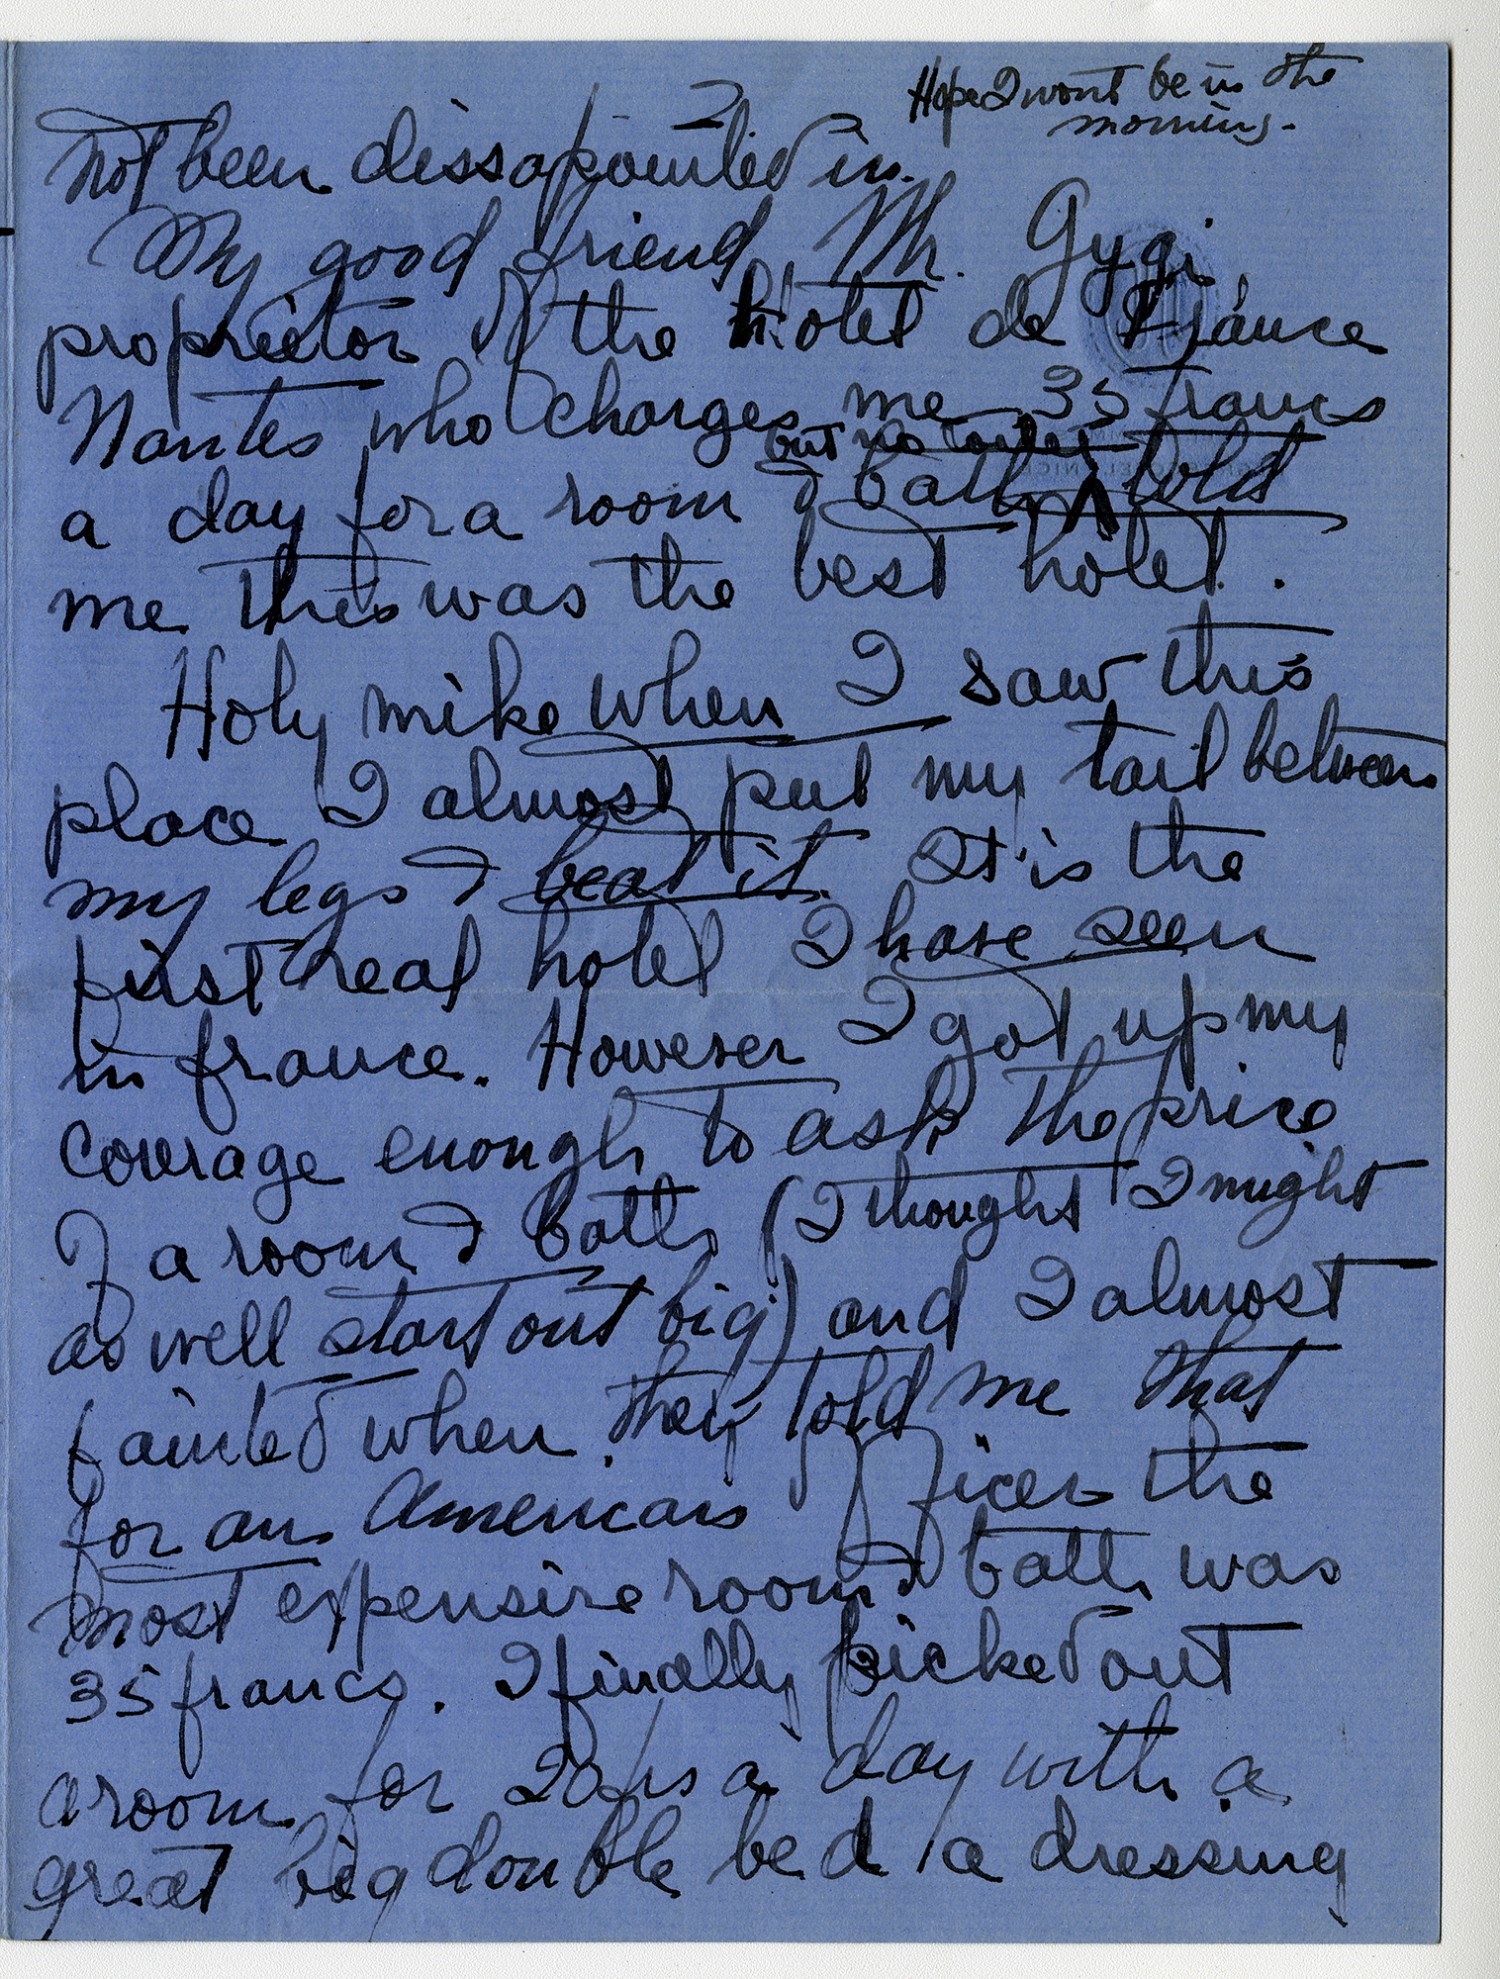 2
Hope I wont be in the
morning.
not been dissapointed in.
My good friend, Mr. Gygi,
proprietor of the Hotel de France
Nantes who charges me 35 francs
but no toilet
a day for a room & bath ^ told
me this was the best hotel.
Holy mike when I saw this
place I almost put my tail between
my legs & beat it. It is the
first real hotel I have seen
in france. However I got up my
courage enough to ask the price
of a room & bath (I thought I might
as well start out big) and I almost
fainted when they told me that
for an American officer the
most expensive room & bath was
35 francs. I finally picked out
a room for 20 frs a day with a
great big double bed, a dressing